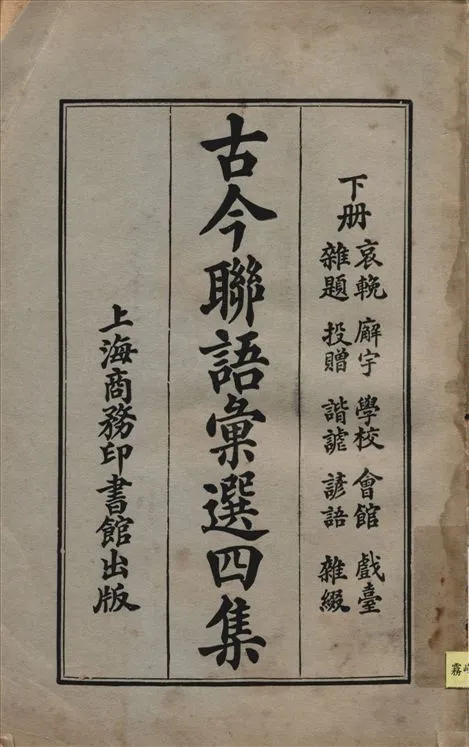 下册
哀輓 廨宇 學校 會館 戲臺
雜題 投贈 諧謔 諺語 雜綴
古今聯語彙選四集
上海商務印書館出版
霧